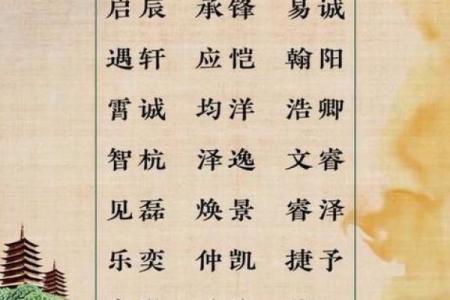 启辰 承锋 易诚
遇轩 应恺 翰阳
霄诚 均洋 浩卿
智杭 泽逸 文睿
见磊 焕景 睿泽
乐奕 仲凯 捷予